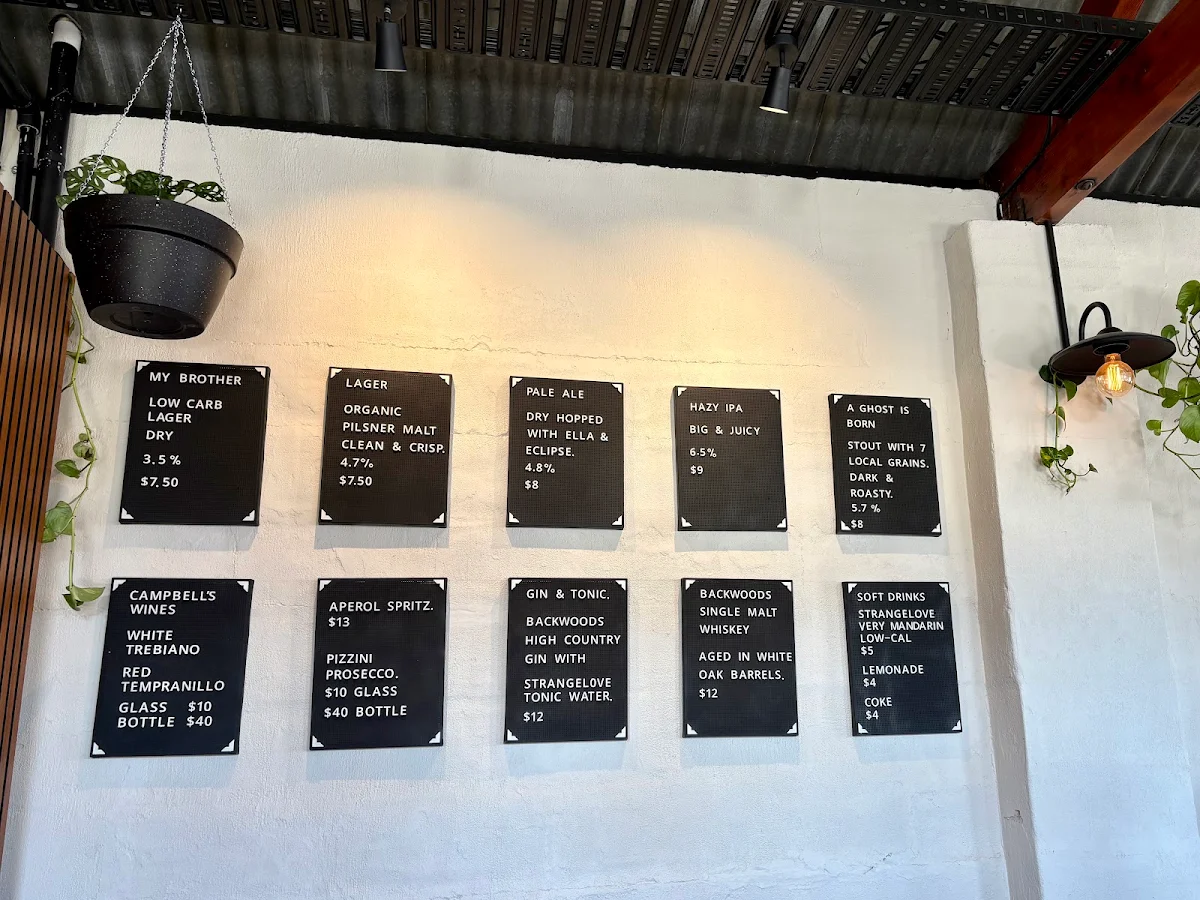 MY BROTHER
LOW CARB
LAGER
DRY
3.5%
$7.50
LAGER
ORGANIC
PILSNER MALT
CLEAN & CRISP.
4.7%
$7.50
PALE ALE
DRY HOPPED
WITH ELLA &
ECLIPSE.
4.8%
$8
HAZY IPA
BIG & JUICY
6.5%
$9
A GHOST IS
BORN
STOUT WITH 7
LOCAL GRAINS.
DARK &
ROASTY.
5.7 %
$8
CAMPBELL'S
WINES
WHITE
TREBIANO
RED
TEMPRANILLO
GLASS $10
BOTTLE $40
APEROL SPRITZ.
$13
PIZZINI
PROSECCO.
$10 GLASS
$40 BOTTLE
GIN & TONIC.
BACKWOODS
HIGH COUNTRY
GIN WITH
STRANGELOVE
TONIC WATER.
$12
BACKWOODS
SINGLE MALT
WHISKEY
AGED IN WHITE
OAK BARRELS.
$12
SOFT DRINKS
STRANGELOVE
VERY MANDARIN
LOW-CAL
$5
LEMONADE
$4
COKE
$4